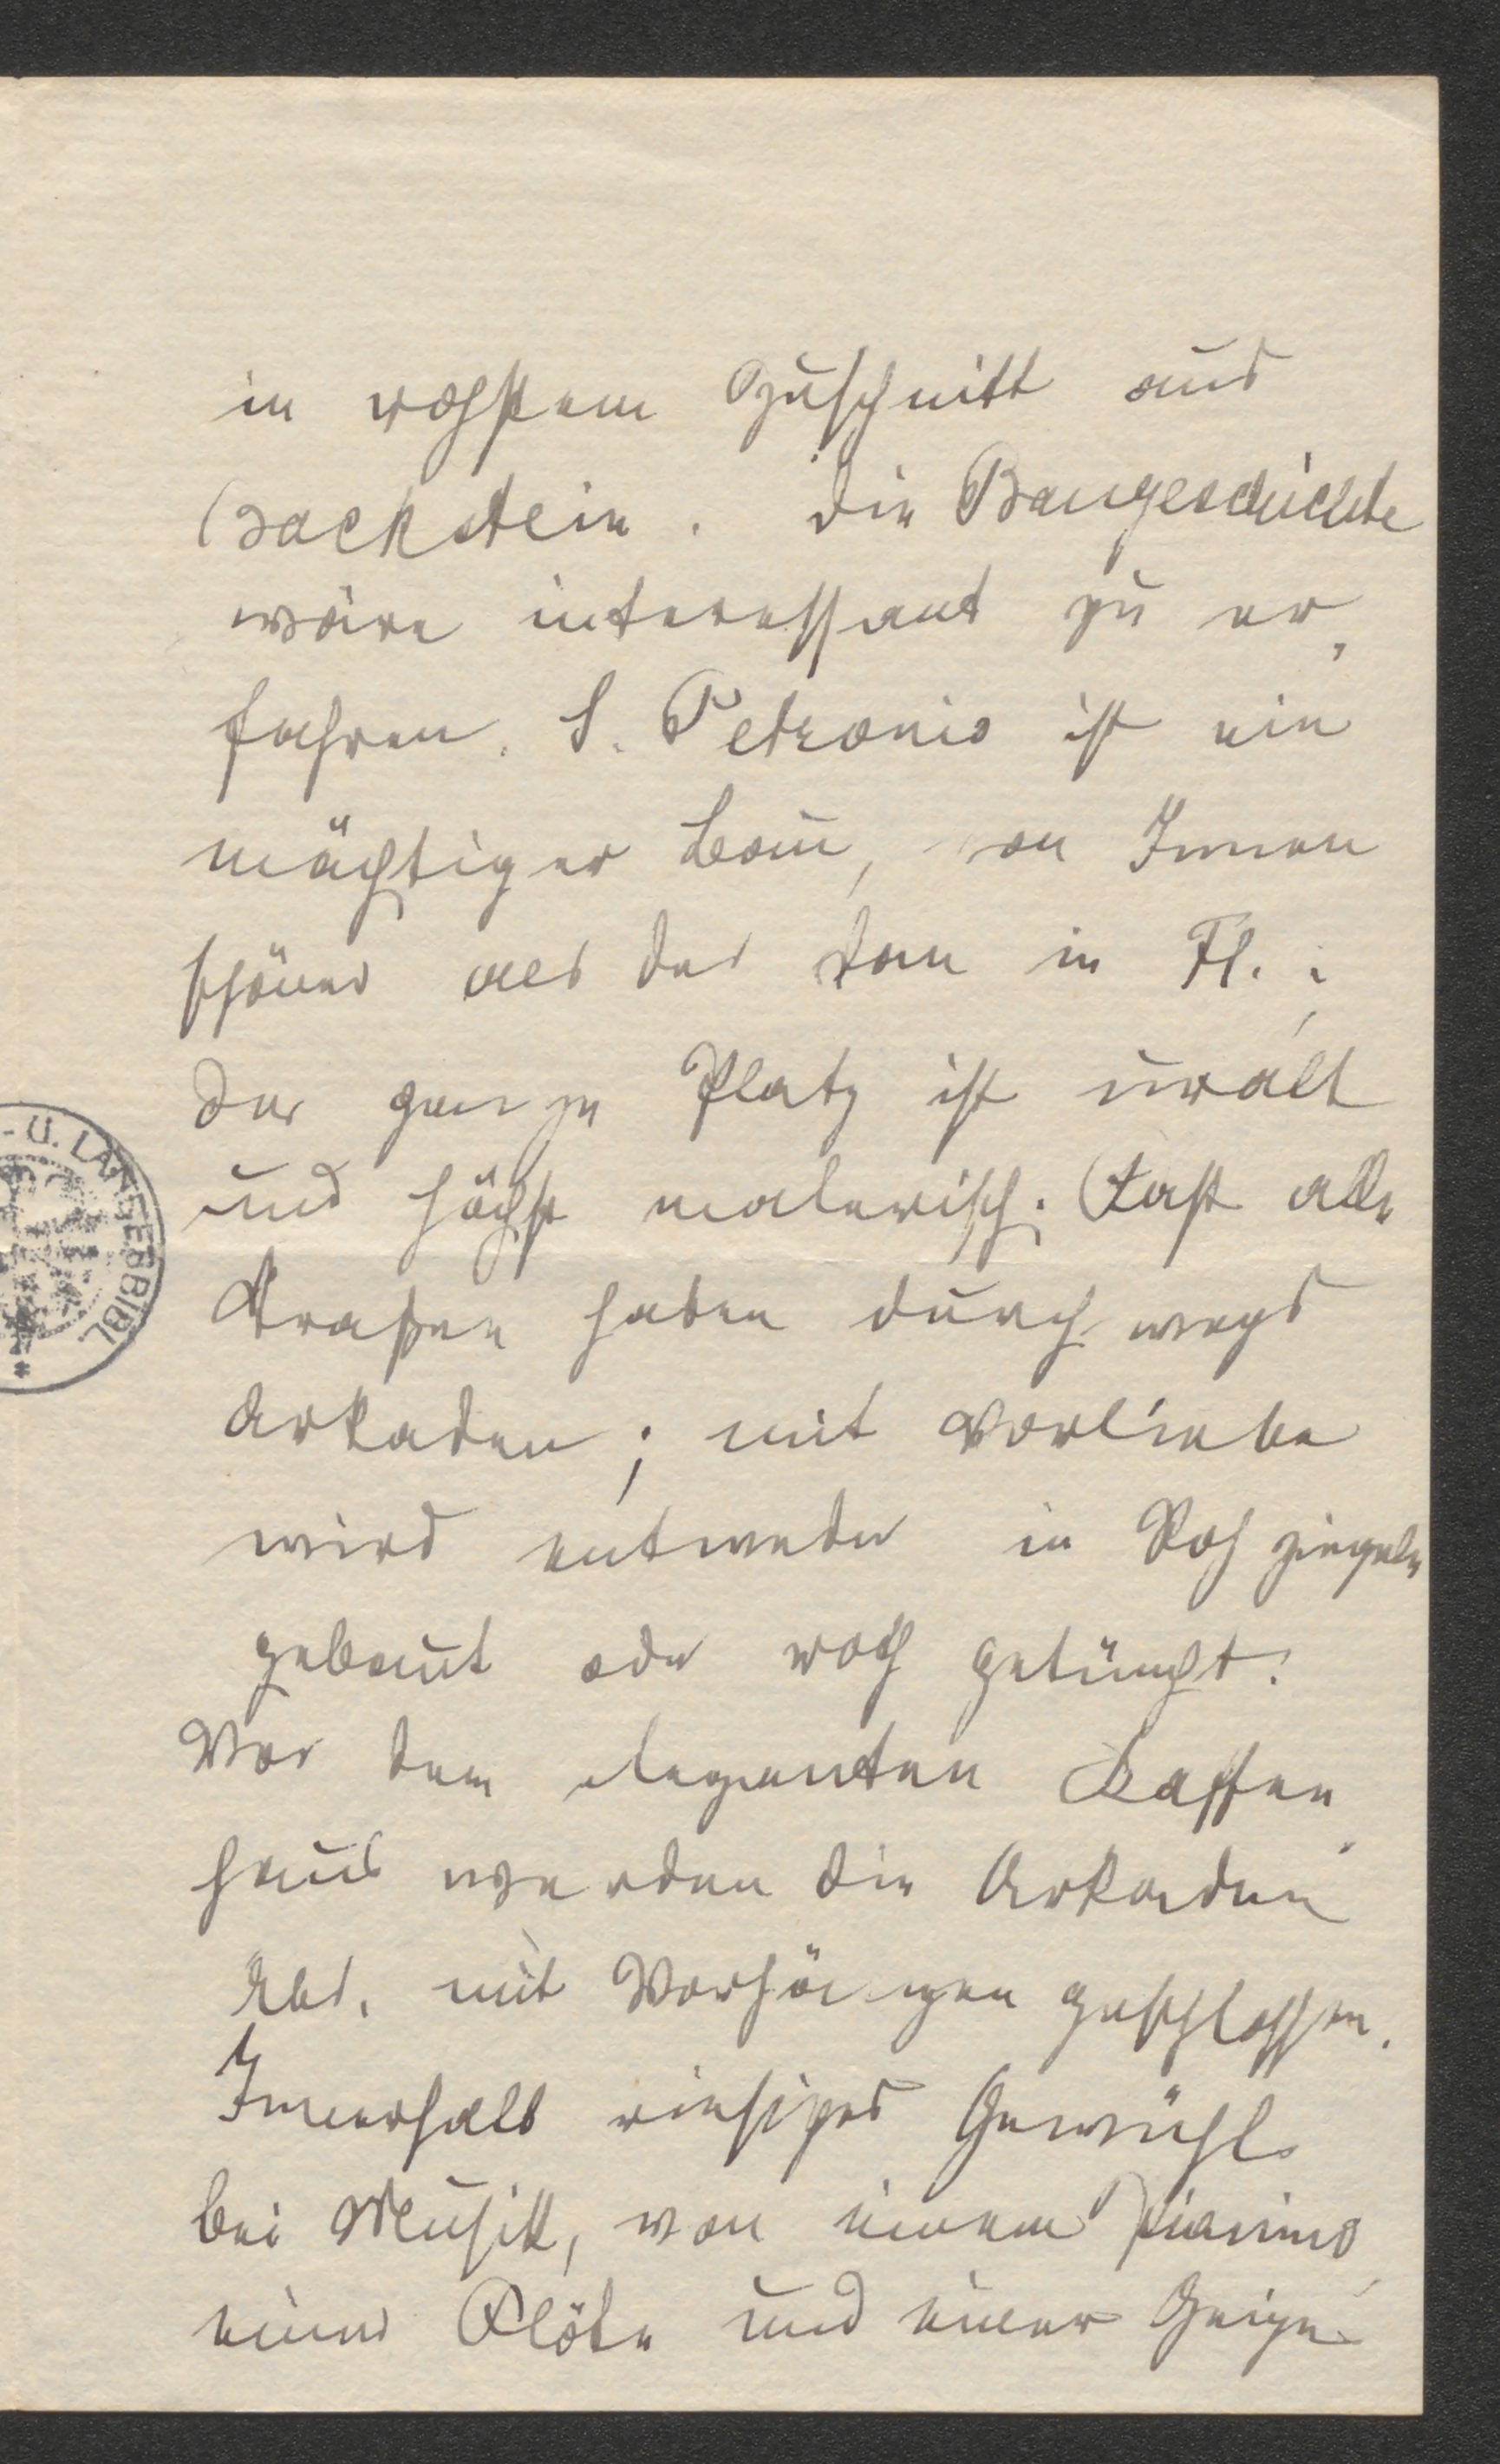 in rohstem Zuschnitt aus
Backstein. Die Baugeschichte
wäre interessant zu er-
fahren. S. Petronio ist ein
mächtiger Bau, von Innen
schöner als der Dom in Fl.;
der ganze Platz ist uralt
und höchst malerisch. Fast alle
Straßen haben durchwegs
Arkaden; mit Vorliebe
wird entweder in Roh ziegeln
gebaut oder roth getüncht.
Vor dem eleganten Kaffee-
haus werden die Arkaden
Abd. mit Vorhängen geschlossen.
Innerhalb riesiges Gewühl
bei Musik, von einem Pianino
einer Flöte und einer Geige
- U. LANDESBIBL.